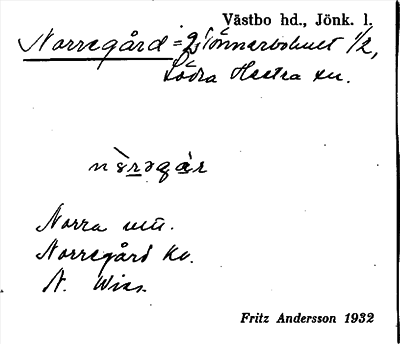 Västbo hd., Jönk. l.
Norregård = Gstönnarbohult 1/2,
Södra Hestra sn.
nòrəgàr
Norra utt.
Norregård Kv.
N. Wiss.
Fritz Andersson 1932